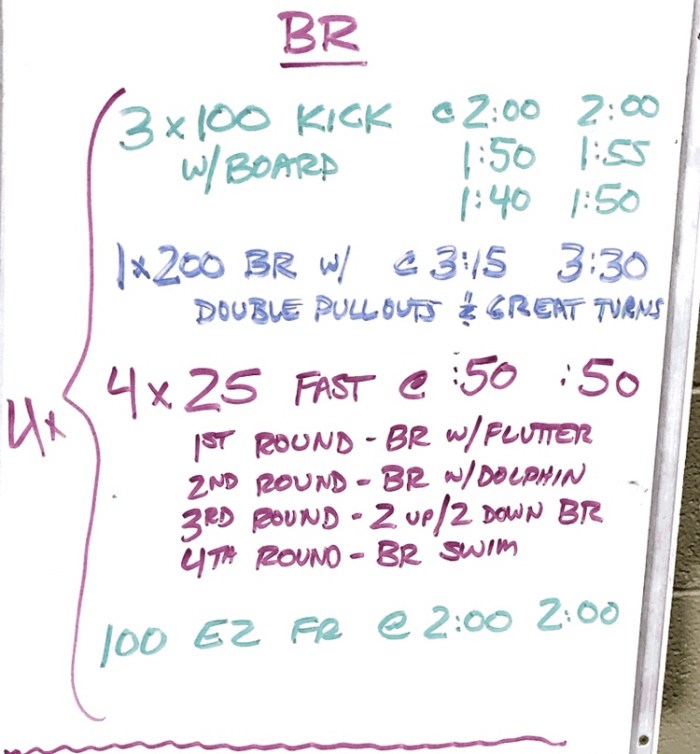 BR
3x100 KICK @ 2:00 2:00
W/BOARD 1:50 1:55
1:40 1:50
1x200 BR W/ @ 3:15 3:30
DOUBLE PULLOUTS & GREAT TURNS
4x
4x25 FAST @ :50 :50
1ST ROUND - BR W/FLUTTER
2ND ROUND - BR W/DOLPHIN
3RD ROUND - 2 UP/2 DOWN BR
4TH ROUND - BR SWIM
100 EZ FR @ 2:00 2:00